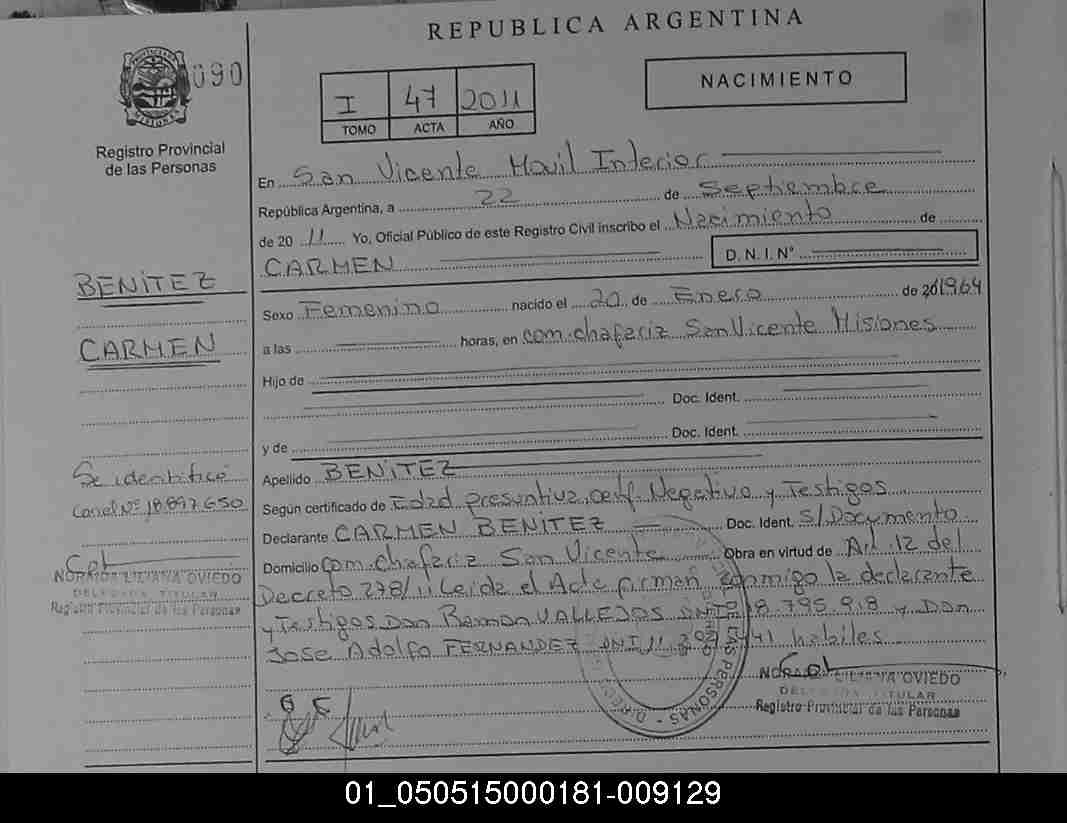 REPUBLICA ARGENTINA
090
MISIONES
Registro Provincial
de las Personas
I 47 2011
TOMO ACTA AÑO
NACIMIENTO
En San Vicente Movil Interior
República Argentina, a 22 de Septiembre
de 2011 Yo, Oficial Público de este Registro Civil inscribo el Nacimiento de
CARMEN D.N.I. Nº
BENITEZ
CARMEN
Sexo Femenino nacido el 20 de Enero de 201964
a las horas, en com. chafariz San Vicente Misiones
Hijo de
Doc. Ident.
y de Doc. Ident.
Apellido BENITEZ
Se identificó
con el Nº 18.897.650
NORMA LILIANA OVIEDO
DELEGADA TITULAR
Registro Provincial de las Personas
Según certificado de Edad presuntiva, cert. Negativo y Testigos
Declarante CARMEN BENITEZ Doc. Ident. S/Documento
Domicilio com. chafariz San Vicente Obra en virtud de Art 12 del
Decreto 278/11 Leida el Acta firman conmigo la declarante
y Testigos Don Ramon VALLEJOS DNI 18.795.918 y Don
Jose Adolfo FERNANDEZ DNI 11 441 habiles
PERSONAS
NORMA LILIANA OVIEDO
DELEGADA TITULAR
Registro Provincial de las Personas
01_050515000181-009129